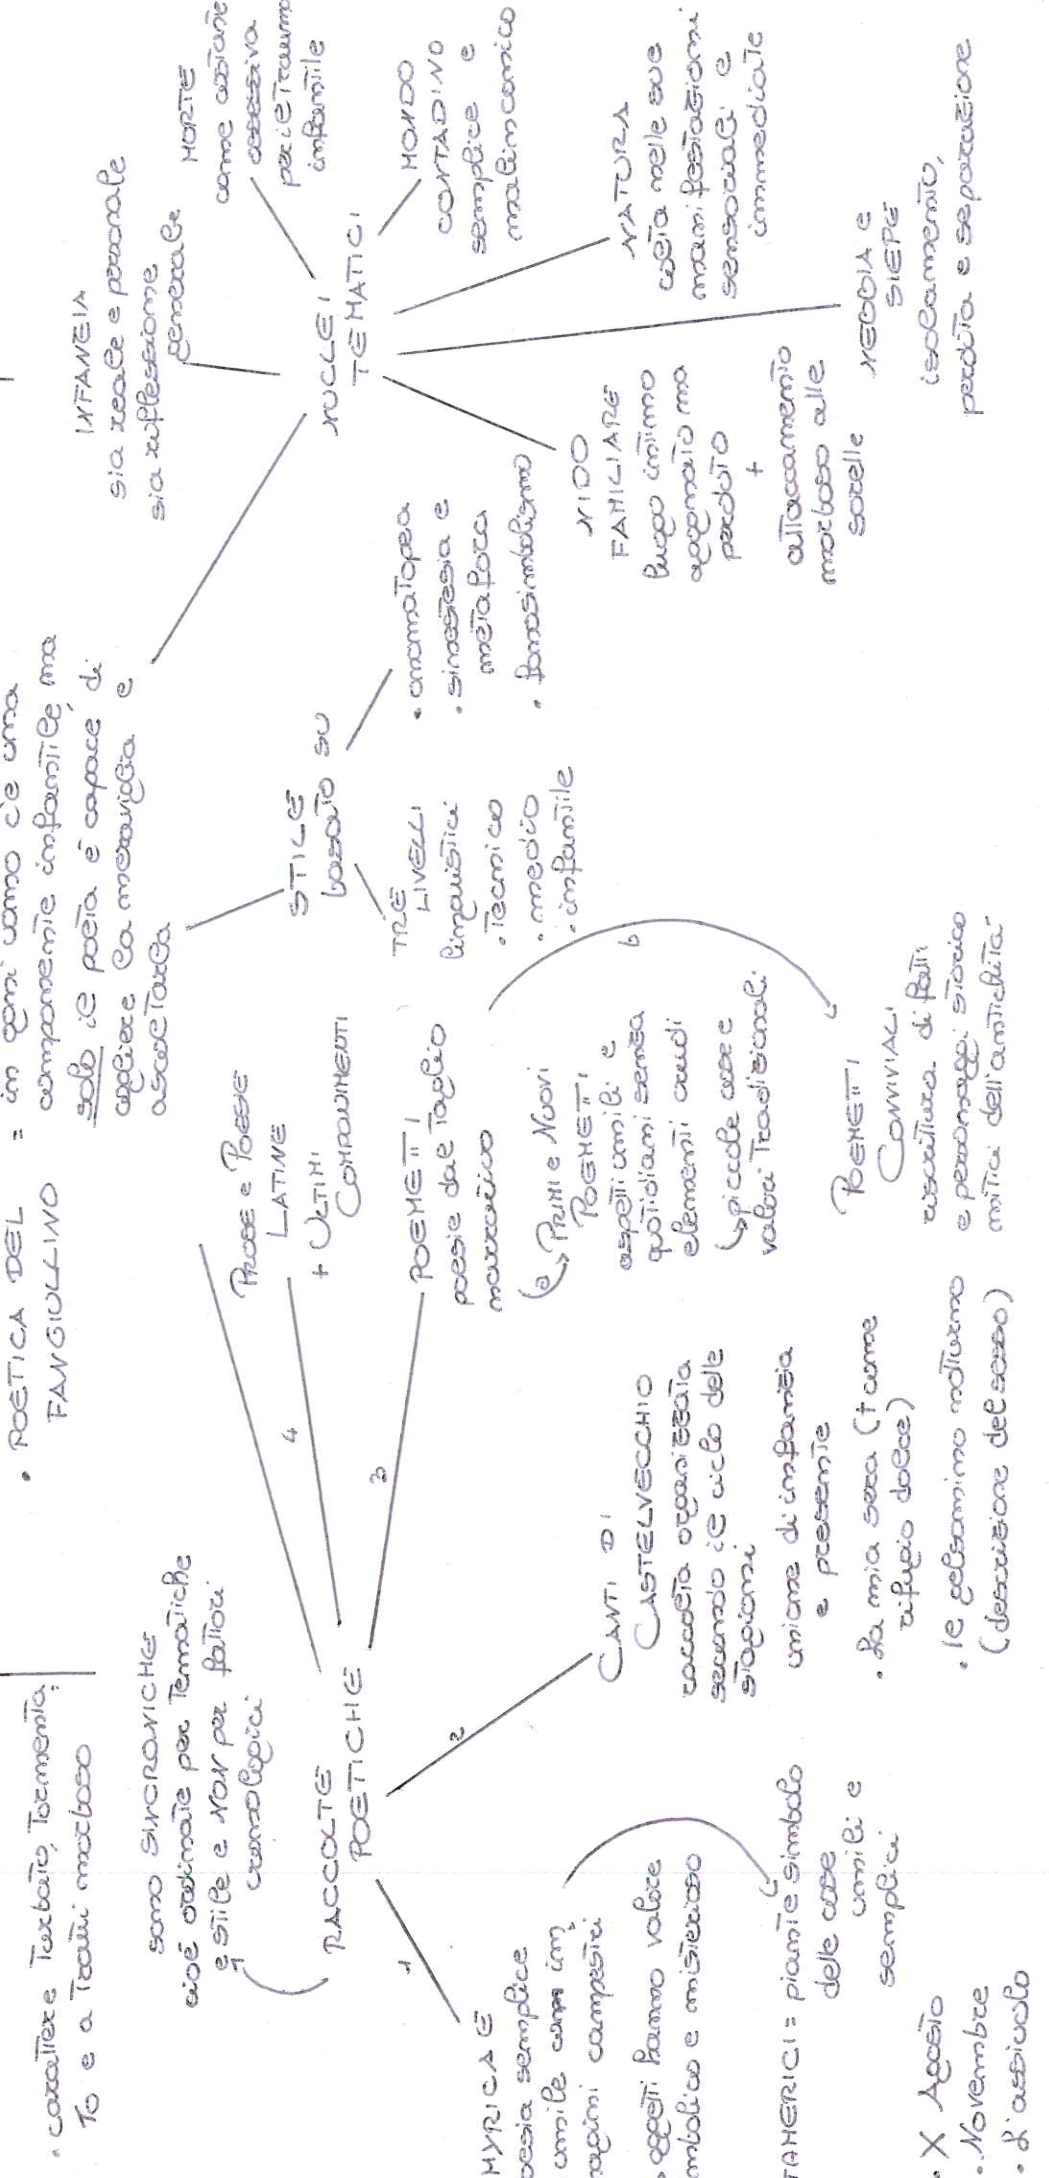 • carattere turbato, tormenta
to e a tratti morboso
• POETICA DEL
FANCIULLINO
=
in ogni uomo c'è una
componente infantile, ma
solo il poeta è capace di
cogliere la meraviglia e
ascoltarla
sono SINCRONICHE
cioè ordinate per tematiche
e stile e NON per fattori
cronologici
RACCOLTE
POETICHE
1
MYRICAE
poesia semplice
umile con im
magini campestri
oggetti hanno valore
simbolico e misterioso
TAMERICI = piante simbolo
delle cose
umili e
semplici
• X Agosto
• Novembre
• L'assiuolo
2
CANTI DI
CASTELVECCHIO
raccolta organizzata
secondo il ciclo delle
stagioni
unione di infanzia
e presente
• La mia sera († come
rifugio dolce)
• Il gelsomino notturno
(descrizione del sesso)
3
POEMETTI
poesie dal taglio
narrativo
a
PRIMI e NUOVI
POEMETTI
aspetti umili e
quotidiani senza
elementi crudi
piccole cose e
valori tradizionali
b
POEMETTI
CONVIVIALI
riscrittura di fatti
e personaggi storico
mitici dell'antichità
4
PROSE e POESIE
LATINE
+ ULTIMI
COMPONIMENTI
STILE
basato su
TRE
LIVELLI
linguistici
• tecnico
• medio
• infantile
• onomatopea
• sinestesia e
metafora
• fonosimbolismo
NUCLEI
TEMATICI
INFANZIA
sia reale e personale
sia riflessione
generale
MORTE
come visione
ossessiva
per il trauma
infantile
MONDO
CONTADINO
semplice e
malinconico
NATURA
colta nelle sue
manifestazioni
sensoriali e
immediate
NEBBIA e
SIEPE
isolamento,
perdita e separazione
NIDO
FAMILIARE
luogo intimo
agognato ma
perduto
+
attaccamento
morboso alle
sorelle